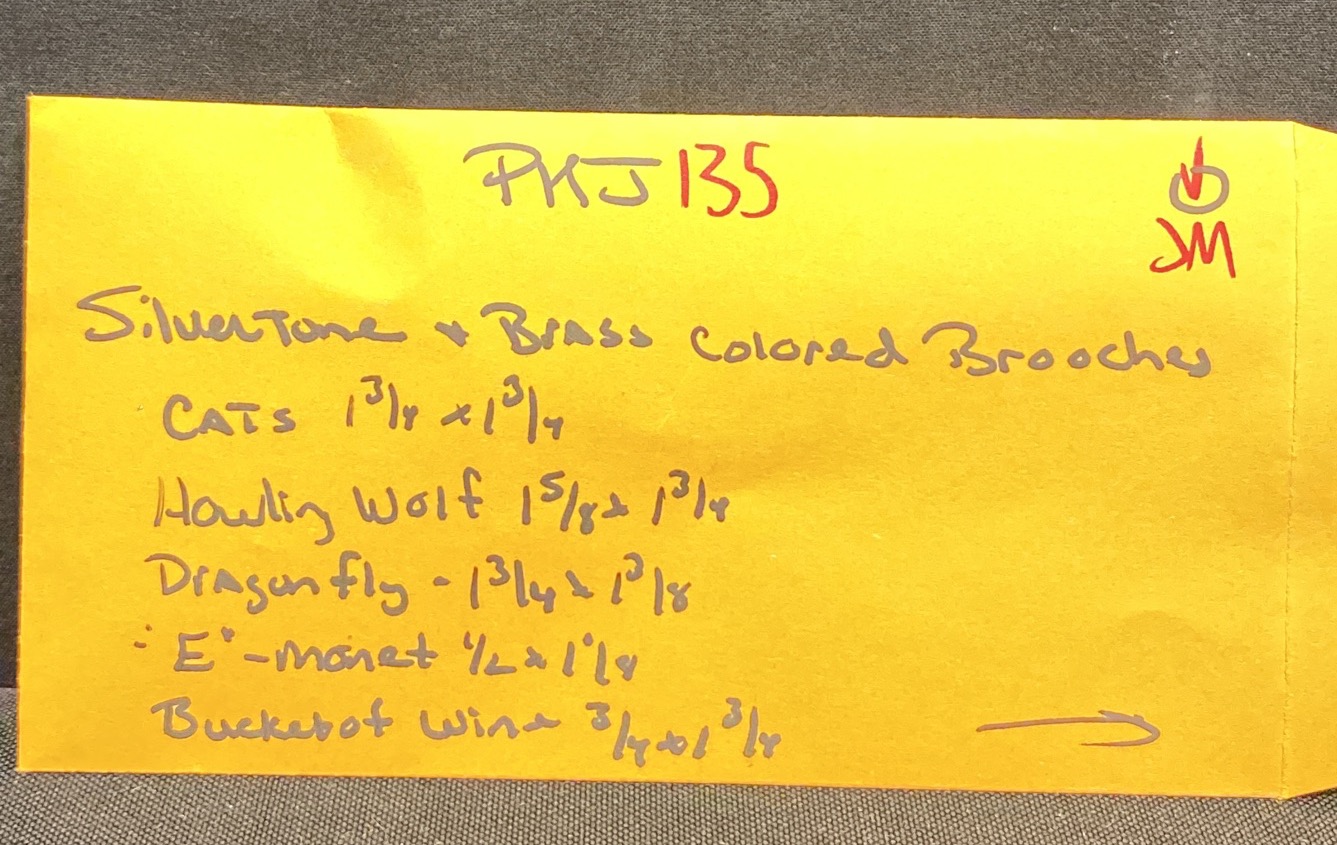 PKJ 135
JM
Silvertone + Brass Colored Brooches
CATS 1 3/4 x 1 3/4
Howling Wolf 1 5/8 x 1 3/4
Dragonfly - 1 3/4 x 1 3/8
"E" - Monet 1/2 x 1 1/4
Bucket of Wine 3/4 x 1 3/4